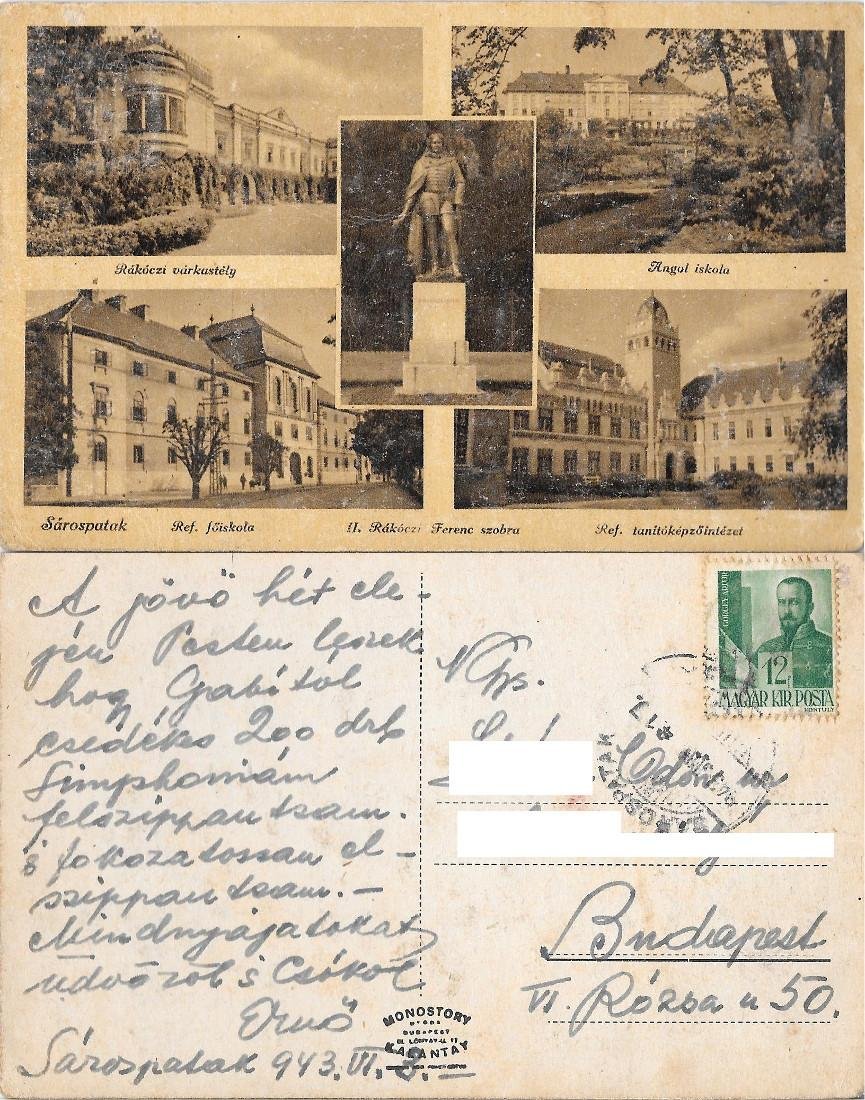 Rákóczi várkastély
Angol iskola
Sárospatak
Ref. főiskola
II. Rákóczi Ferenc szobra
Ref. tanítóképzőintézet
A jövő hét ele-
jén Pesten leszek
hog Gabitól
csedéks 200 drb
Simphoniám
felszippantsam.
s fokozatossan el-
szippantsam. -
Mindnyájatokat
üdvözöl s Csókol
Ernő
Sárospatak 943. VI. 3. -
GÖRGEY ARTUR
12f
MAGYAR KIR. POSTA
KONTULY
SÁROSPATAK
Ngs.
Ödön úr
Budapest
VI. Rózsa u 50.
MONOSTORY
BUDAPEST
KARANTÁY